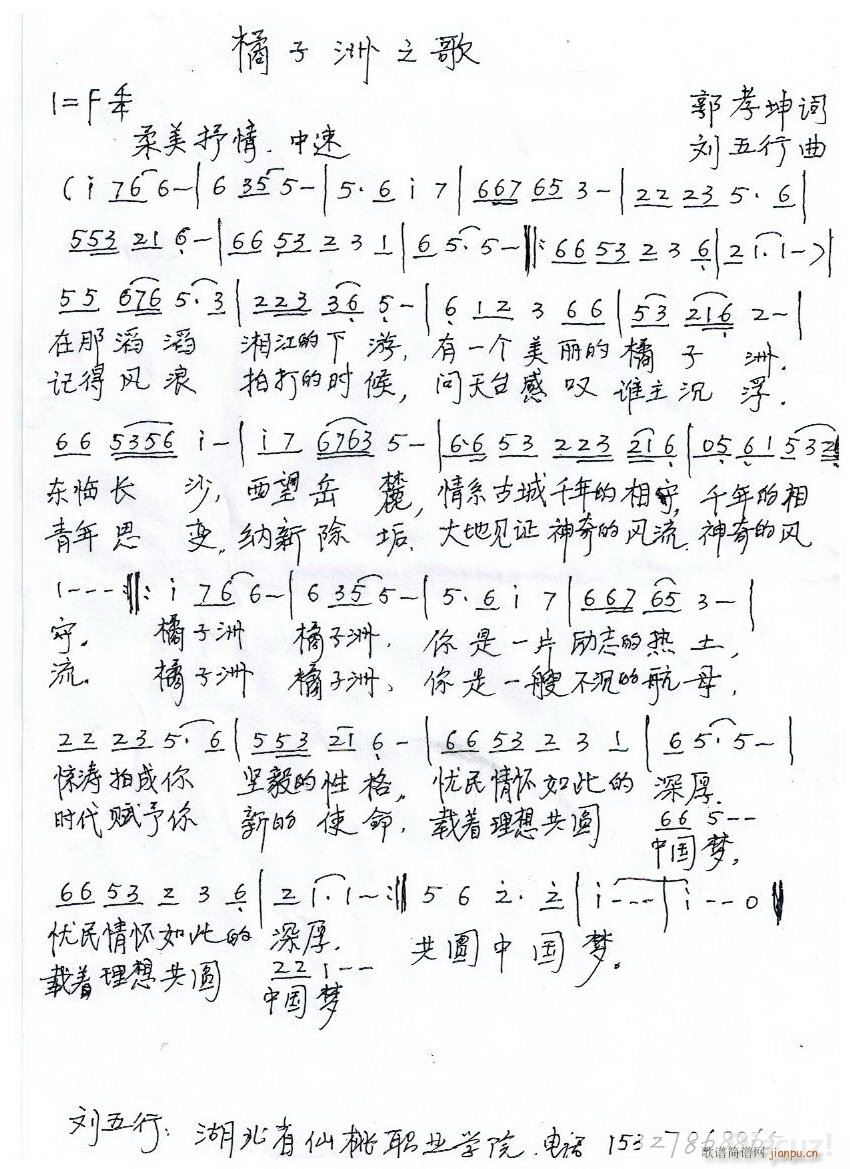 橘子洲之歌
1=F 4/4
郭孝坤词
柔美抒情．中速
刘五行曲
(i 7 6 6 - | 6 3 5 5 - | 5· 6 i 7 | 6 6 7 6 5 3 - | 2 2 2 3 5· 6 |
5 5 3 2 1 6 - | 6 6 5 3 2 3 1 | 6 5· 5 - ‖: 6 6 5 3 2 3 6 | 2 1· 1 - ) |
5 5 6 7 6 5· 3 | 2 2 3 3 6 5 - | 6 1 2 3 6 6 | 5 3 2 1 6 2 - |
在那滔滔 湘江的下游，有一个美丽的橘子洲．
记得风浪 拍打的时候，问天台感叹 谁主沉浮．
6 6 5 3 5 6 i - | i 7 6 7 6 3 5 - | 6·6 5 3 2 2 3 2 1 6 | 0 5 6 1 5 3 2 |
东临长沙，西望岳麓，情系古城千年的相守，千年的相
青年思变，纳新除垢．大地见证神奇的风流．神奇的风
1 - - - :‖: i 7 6 6 - | 6 3 5 5 - | 5· 6 i 7 | 6 6 7 6 5 3 - |
守。 橘子洲 橘子洲．你是一片励志的热土，
流。 橘子洲 橘子洲、你是一艘不沉的航母，
2 2 2 3 5· 6 | 5 5 3 2 1 6 - | 6 6 5 3 2 3 1 | 6 5· 5 - |
惊涛拍成你 坚毅的性格。忧民情怀如此的 深厚．
时代赋予你 新的使命．载着理想共圆 6 6 5 - -
中国梦，
6 6 5 3 2 3 6 | 2 1· 1 - :‖ 5 6 2· 2 | i - - - | i - - 0 ‖
忧民情怀如此的 深厚． 共圆中国梦。
载着理想共圆 2 2 1 - -
中国梦
刘五行：湖北省仙桃职业学院．电话 15327868865
歌谱简谱网 jianpu.cn